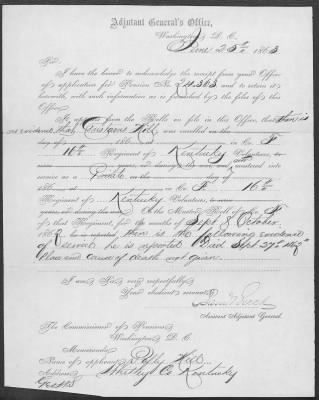 Adjutant General's Office,
Washington, D. C.
June 25th, 1863
Sir:
I have the honor to acknowledge the receipt from your Office
of application for Pension No. 24.303, and to return it
herewith, with such information as is furnished by the files of this
Office.
It appears from the Rolls on file in this Office, that there is
no evidence that Hill was enrolled on the
day of 186 in Co. F
16th Regiment of Kentucky Volunteers, to
serve years, or during the war, and mustered into
service as a Private on the day of
186 at in Co. F 16th
Regiment of Kentucky Volunteers, to serve
years, or during the war. On the Muster Roll of Co. F
of that Regiment, for the months of Sept & October
1862, he is reported there is the following evidence
of service he is reported "Died Sept 27th 1862
Place and cause of death not given.
I am, Sir, very respectfully,
Your obedient servant,
Assistant Adjutant General.
The Commissioner of Pensions,
Washington, D. C.
Memoranda:
Name of applicant, Hill
Address, Whitley Co Kentucky